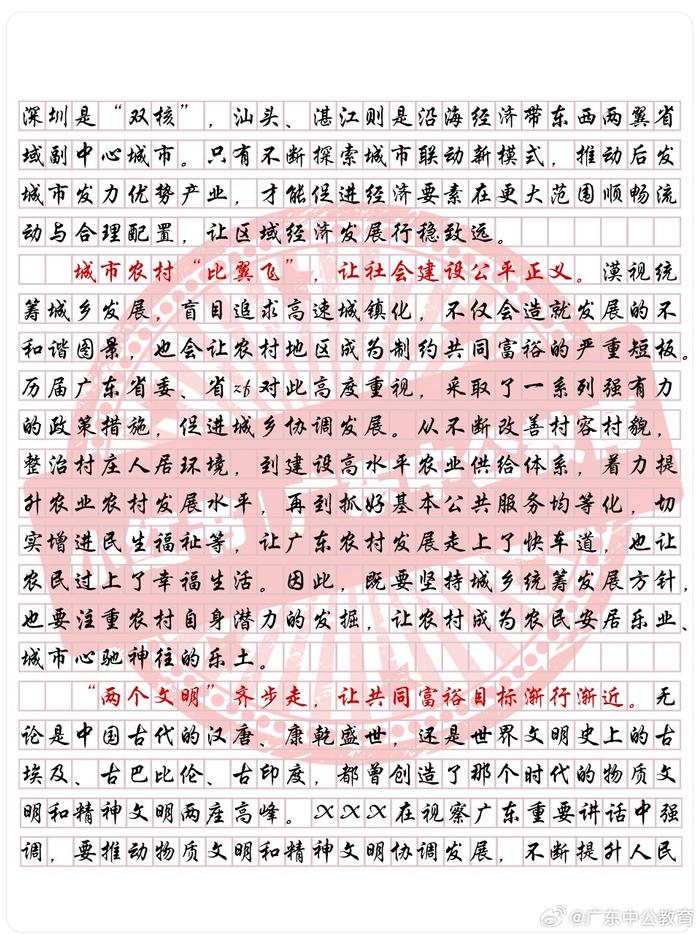 深圳是“双核”，汕头、湛江则是沿海经济带东西两翼省
域副中心城市。只有不断探索城市联动新模式，推动后发
城市发力优势产业，才能促进经济要素在更大范围顺畅流
动与合理配置，让区域经济发展行稳致远。
城市农村“比翼飞”，让社会建设公平正义。漠视统
筹城乡发展，盲目追求高速城镇化，不仅会造就发展的不
和谐图景，也会让农村地区成为制约共同富裕的严重短板。
历届广东省委、省zf对此高度重视，采取了一系列强有力
的政策措施，促进城乡协调发展。从不断改善村容村貌，
整治村庄人居环境，到建设高水平农业供给体系，着力提
升农业农村发展水平，再到抓好基本公共服务均等化，切
实增进民生福祉等，让广东农村发展走上了快车道，也让
农民过上了幸福生活。因此，既要坚持城乡统筹发展方针，
也要注重农村自身潜力的发掘，让农村成为农民安居乐业、
城市心驰神往的乐土。
“两个文明”齐步走，让共同富裕目标渐行渐近。无
论是中国古代的汉唐、康乾盛世，还是世界文明史上的古
埃及、古巴比伦、古印度，都曾创造了那个时代的物质文
明和精神文明两座高峰。XXX在视察广东重要讲话中强
调，要推动物质文明和精神文明协调发展，不断提升人民
@广东中公教育